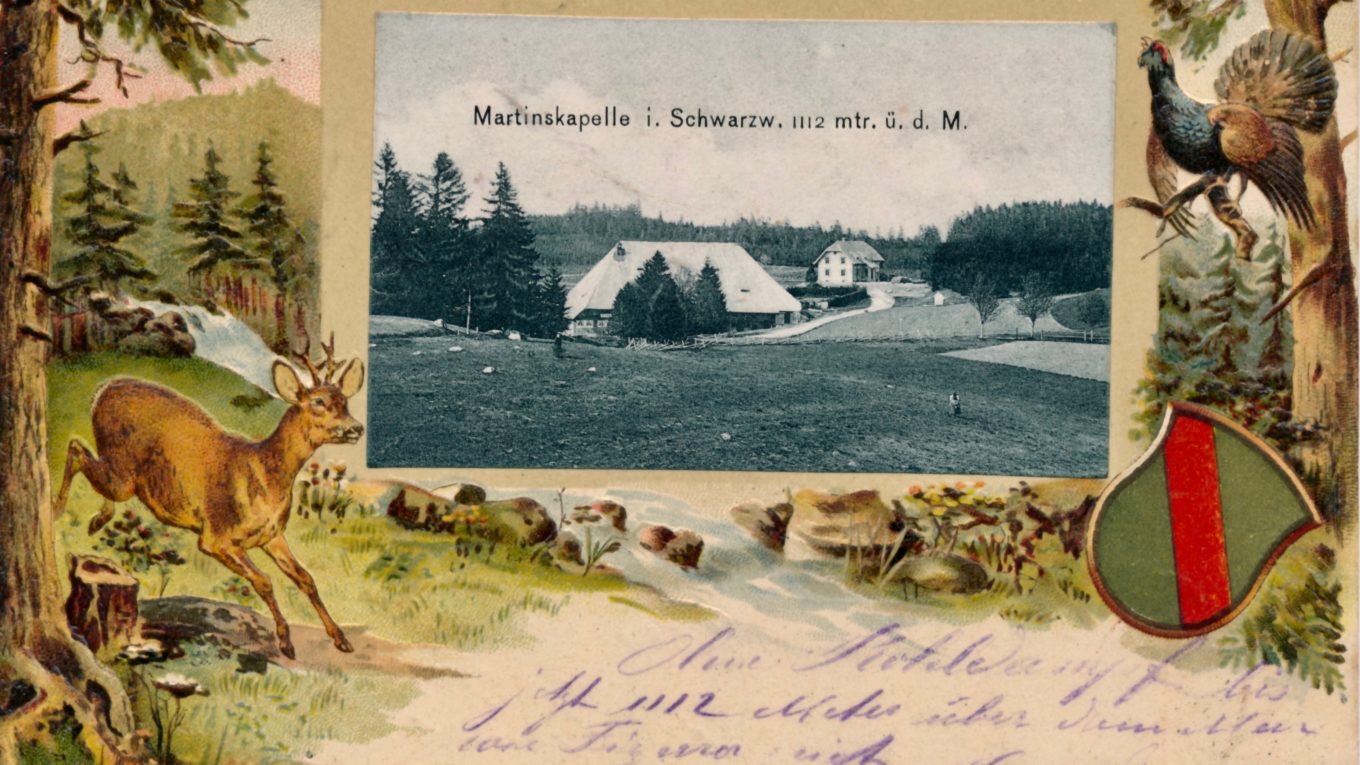 Martinskapelle i. Schwarzw. 1112 mtr. ü. d. M.
Ohne Kohldampf bis
jetzt 1112 Meter über dem Meer